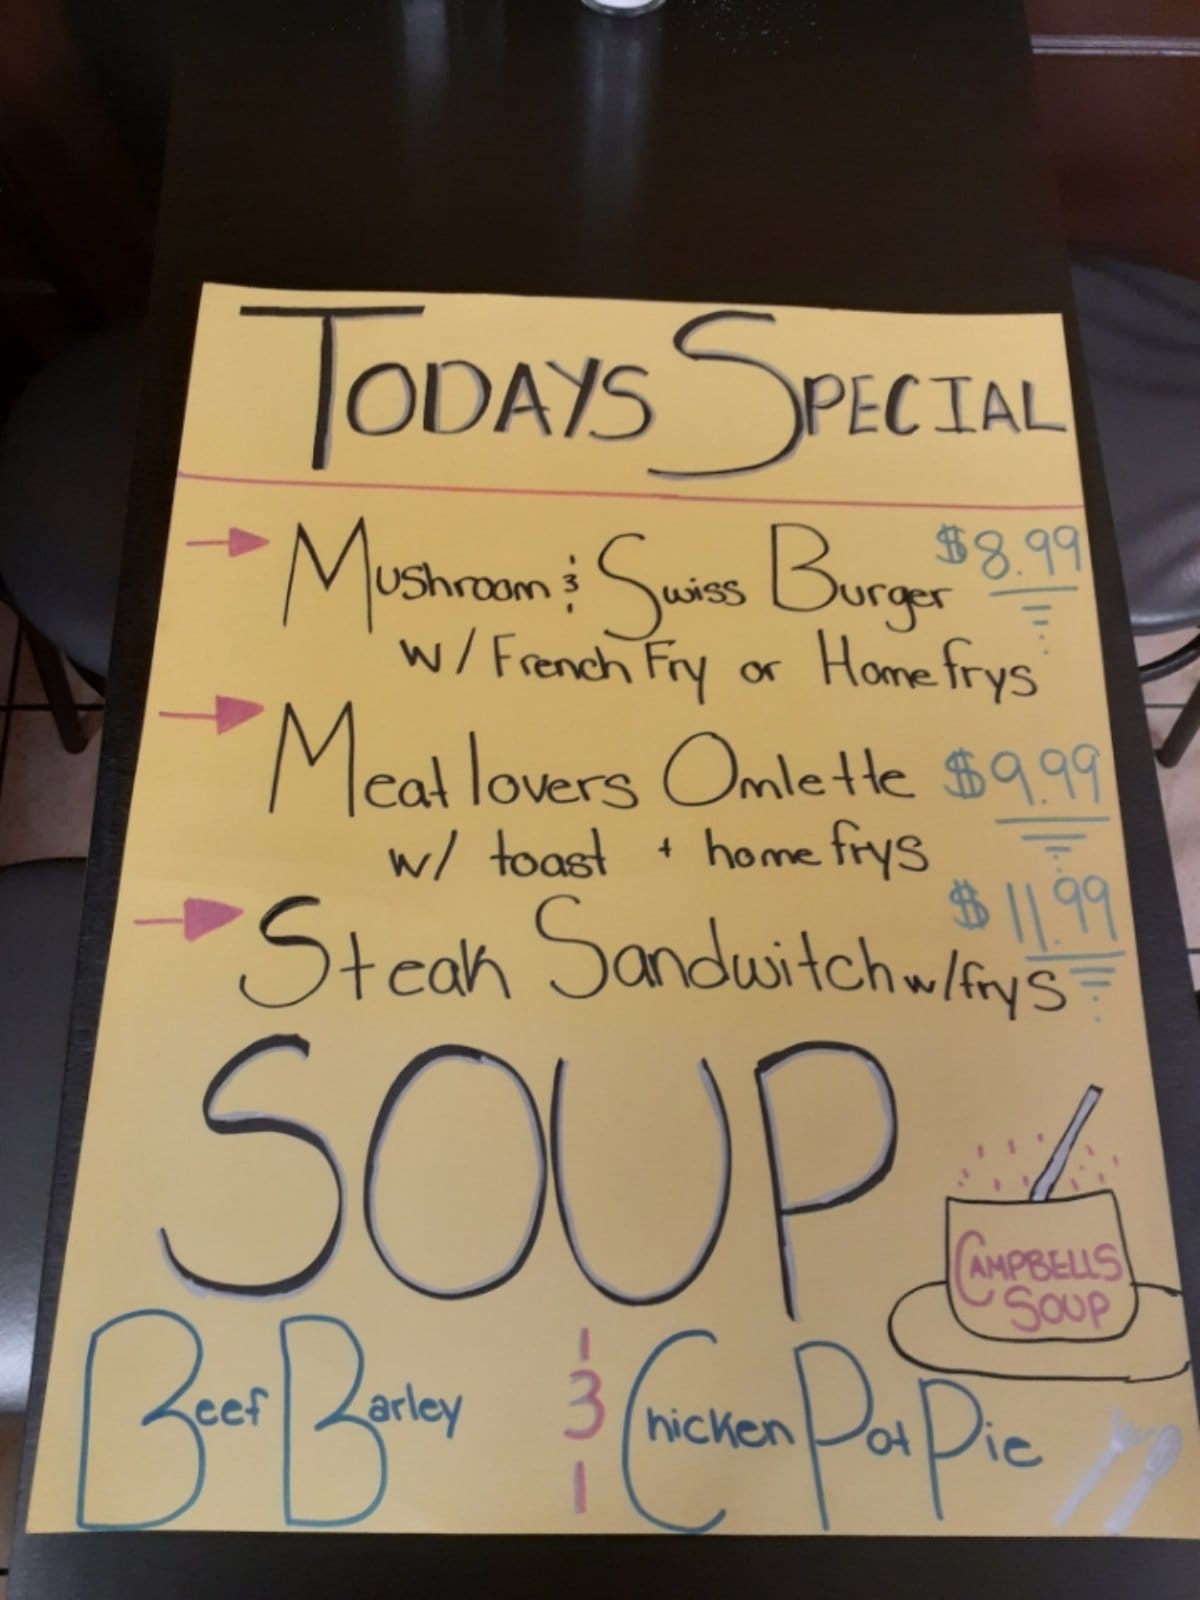 TODAYS SPECIAL
Mushroom & Swiss Burger $8.99
w/ French Fry or Home frys
Meat lovers Omlette $9.99
w/ toast + home frys
Steak Sandwitch w/frys $11.99
SOUP
CAMPBELLS
SOUP
Beef Barley & Chicken Pot Pie